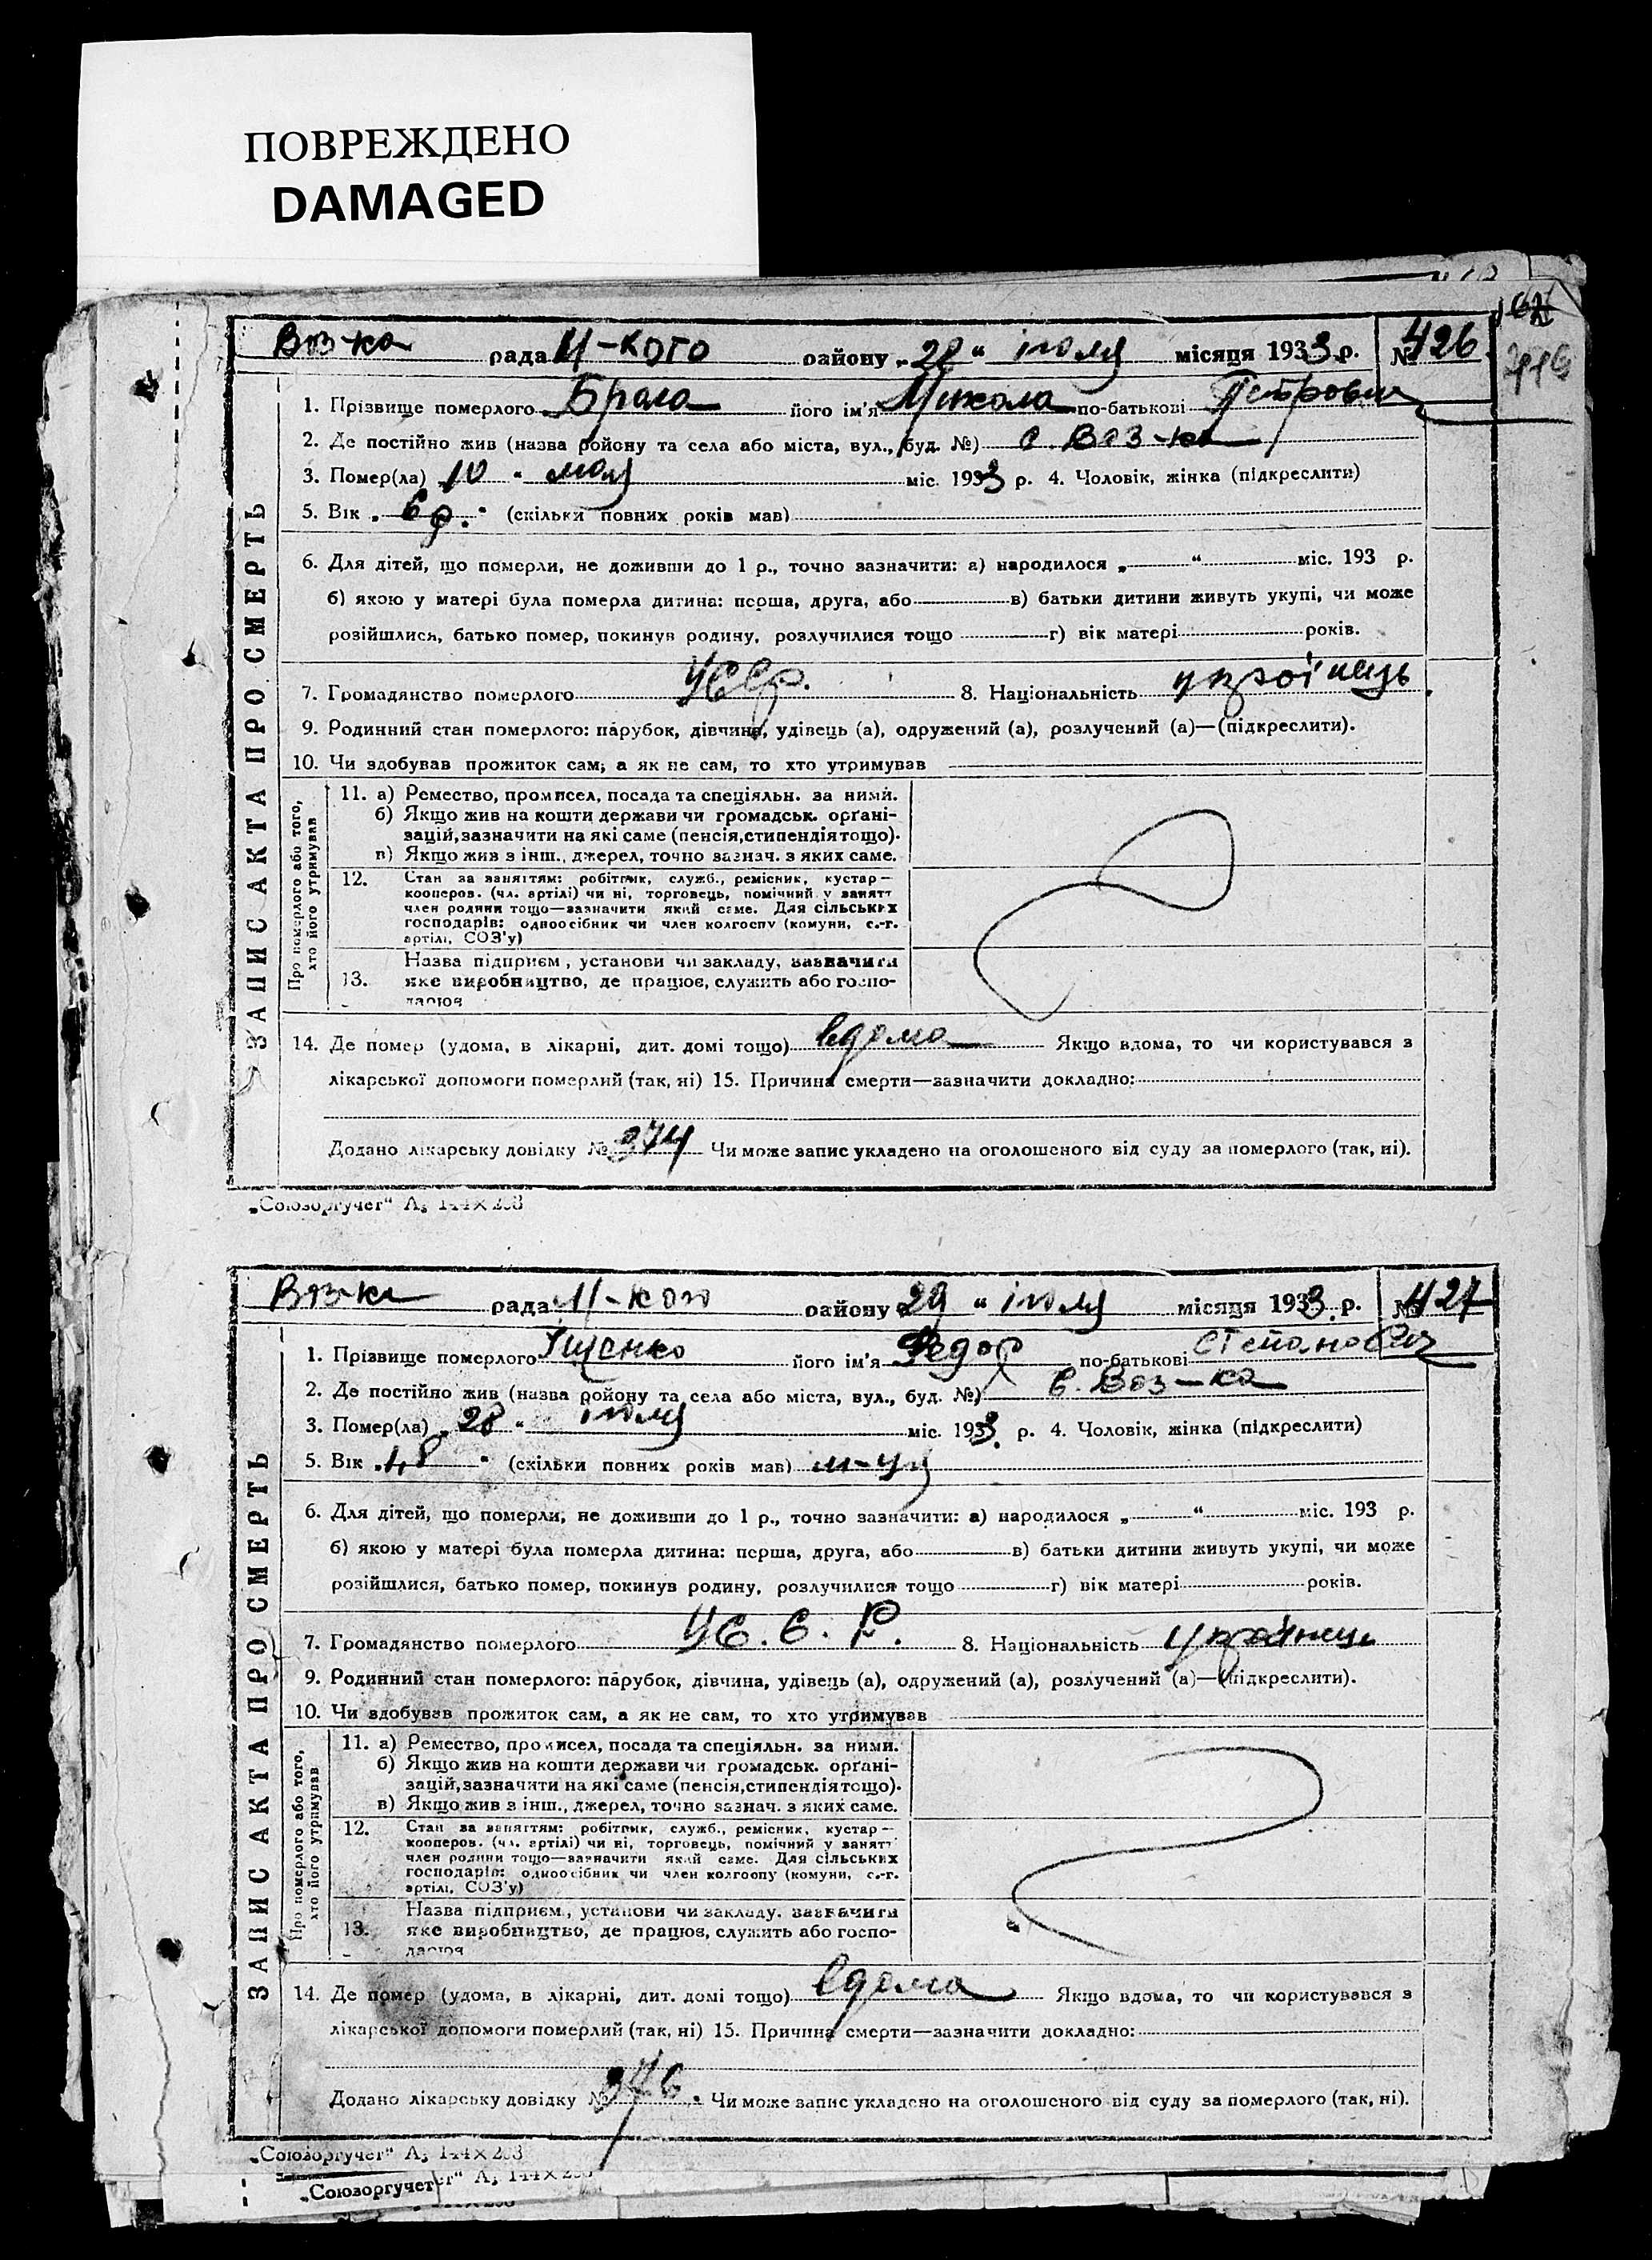 ПОВРЕЖДЕНО
DAMAGED
Вяз-ка рада М-кого району „28“ іюля місяця 1933 р. № 426
1. Прізвище померлого Брага його ім'я Микола по-батькові Петрович
2. Де постійно жив (назва району та села або міста, вул., буд. №) с. Вяз-ка
3. Помер(ла) 10 " мая міс. 1933 р. 4. Чоловік, жінка (підкреслити)
5. Вік „ 6 р. " (скільки повних років мав)
6. Для дітей, що померли, не доживши до 1 р., точно зазначити: а) народилося „ “ міс. 193 р.
б) якою у матері була померла дитина: перша, друга, або в) батьки дитини живуть укупі, чи може
розійшлися, батько помер, покинув родину, розлучилися тощо г) вік матері років.
7. Громадянство померлого УССР. 8. Національність українець
9. Родинний стан померлого: парубок, дівчина, удівець (а), одружений (а), розлучений (а)—(підкреслити).
10. Чи здобував прожиток сам, а як не сам, то хто утримував
Про померлого або того, хто його утримував
11. а) Ремество, промисел, посада та спеціяльн. за ними.
б) Якщо жив на кошти держави чи громадськ. орґані-
зацій, зазначити на які саме (пенсія, стипендія тощо).
в) Якщо жив з інш., джерел, точно зазнач. з яких саме.
12. Стан за заняттям: робітник, служб., ремісник, кустар—
кооперов. (чл. артілі) чи ні, торговець, помічний у занятт
член родини тощо—зазначити який саме. Для сільських
господарів: одноосібник чи член колгоспу (комуни, с.-г.
артілі, СОЗ'у)
Назва підприєм., установи чи закладу, зазначити
13. яке виробництво, де працює, служить або госпо-
дарює
14. Де помер (удома, в лікарні, дит. домі тощо) вдома Якщо вдома, то чи користувався з
лікарської допомоги померлий (так, ні) 15. Причина смерти—зазначити докладно:
Додано лікарську довідку № 374 Чи може запис укладено на оголошеного від суду за померлого (так, ні).
ЗАПИС АКТА ПРО СМЕРТЬ
„Союзоргучет“ А₅ 144×203
Вяз-ка рада М-кого району 29 “ іюля місяця 1933 р. № 427
1. Прізвище померлого Іщенко його ім'я Федор по-батькові Степанович
2. Де постійно жив (назва району та села або міста, вул., буд. №) с. Вяз-ка
3. Помер(ла) „ 28 " іюля міс. 1933 р. 4. Чоловік, жінка (підкреслити)
5. Вік „ 48 " (скільки повних років мав)
6. Для дітей, що померли, не доживши до 1 р., точно зазначити: а) народилося „ “ міс. 193 р.
б) якою у матері була померла дитина: перша, друга, або в) батьки дитини живуть укупі, чи може
розійшлися, батько помер, покинув родину, розлучилися тощо г) вік матері років.
7. Громадянство померлого УС.С.Р. 8. Національність українець
9. Родинний стан померлого: парубок, дівчина, удівець (а), одружений (а), розлучений (а)—(підкреслити).
10. Чи здобував прожиток сам, а як не сам, то хто утримував
Про померлого або того, хто його утримував
11. а) Ремество, промисел, посада та спеціяльн. за ними.
б) Якщо жив на кошти держави чи громадськ. орґані-
зацій, зазначити на які саме (пенсія, стипендія тощо).
в) Якщо жив з інш., джерел, точно зазнач. з яких саме.
12. Стан за заняттям: робітник, служб., ремісник, кустар—
кооперов. (чл. артілі) чи ні, торговець, помічний у занятт
член родини тощо—зазначити який саме. Для сільських
господарів: одноосібник чи член колгоспу (комуни, с.-г.
артілі, СОЗ'у)
Назва підприєм., установи чи закладу, зазначити
13. яке виробництво, де працює, служить або госпо-
дарює
14. Де помер (удома, в лікарні, дит. домі тощо) вдома Якщо вдома, то чи користувався з
лікарської допомоги померлий (так, ні) 15. Причина смерти—зазначити докладно:
Додано лікарську довідку № 376 Чи може запис укладено на оголошеного від суду за померлого (так, ні).
ЗАПИС АКТА ПРО СМЕРТЬ
„Союзоргучет“ А₅ 144×203
„Союзоргучет“ А₅ 144×203